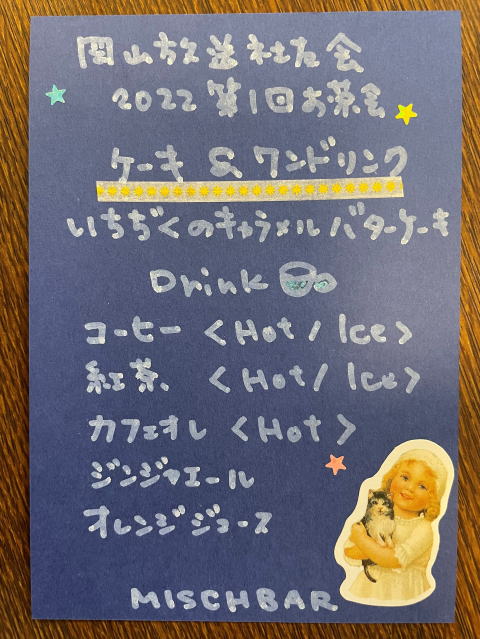 岡山放送社友会
2022 第1回お茶会
ケーキ & ワンドリンク
いちぢくのキャラメルバターケーキ
Drink
コーヒー <Hot/Ice>
紅茶 <Hot/Ice>
カフェオレ <Hot>
ジンジャエール
オレンジジュース
MISCHBAR